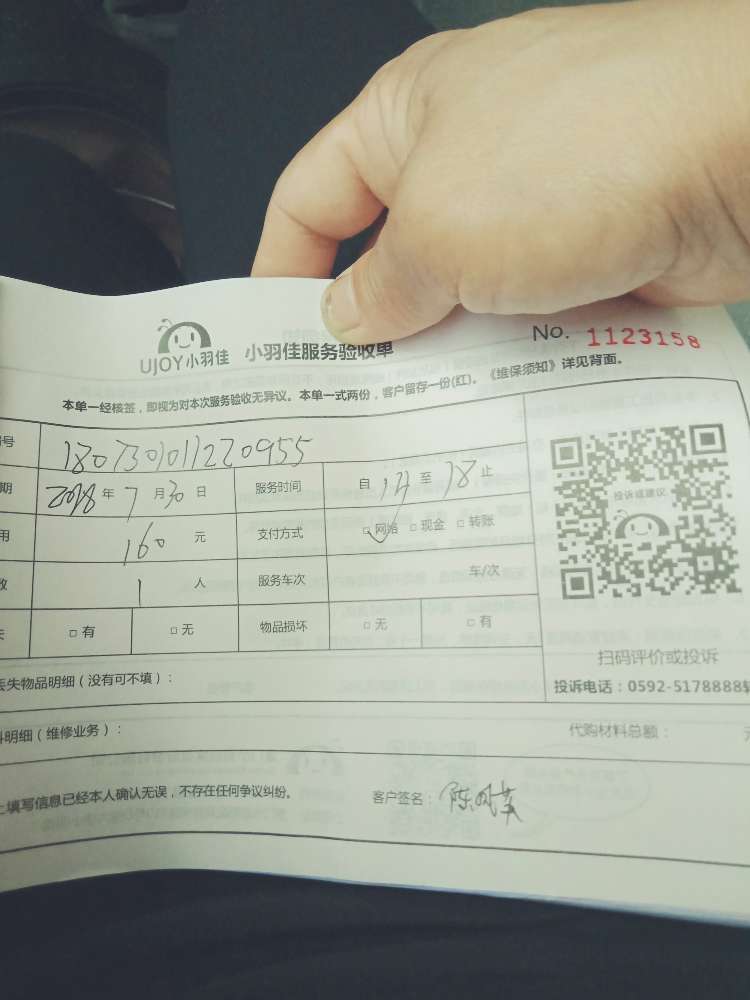 UJOY小羽佳 小羽佳服务验收单 No. 1123158
本单一经核签，即视为对本次服务验收无异议。本单一式两份，客户留存一份(红)。《维保须知》详见背面。
号 1807301011220955
期 2018 年 7 月 30 日 服务时间 自 至 18 止
投诉或建议
用 160 元 支付方式 □ 网络 □ 现金 □ 转账
数 1 人 服务车次 车/次
失 □ 有 □ 无 物品损坏 □ 无 □ 有
扫码评价或投诉
丢失物品明细（没有可不填）： 投诉电话：0592-5178888
料明细（维修业务）： 代购材料总额： 元
上填写信息已经本人确认无误，不存在任何争议纠纷。 客户签名：陈